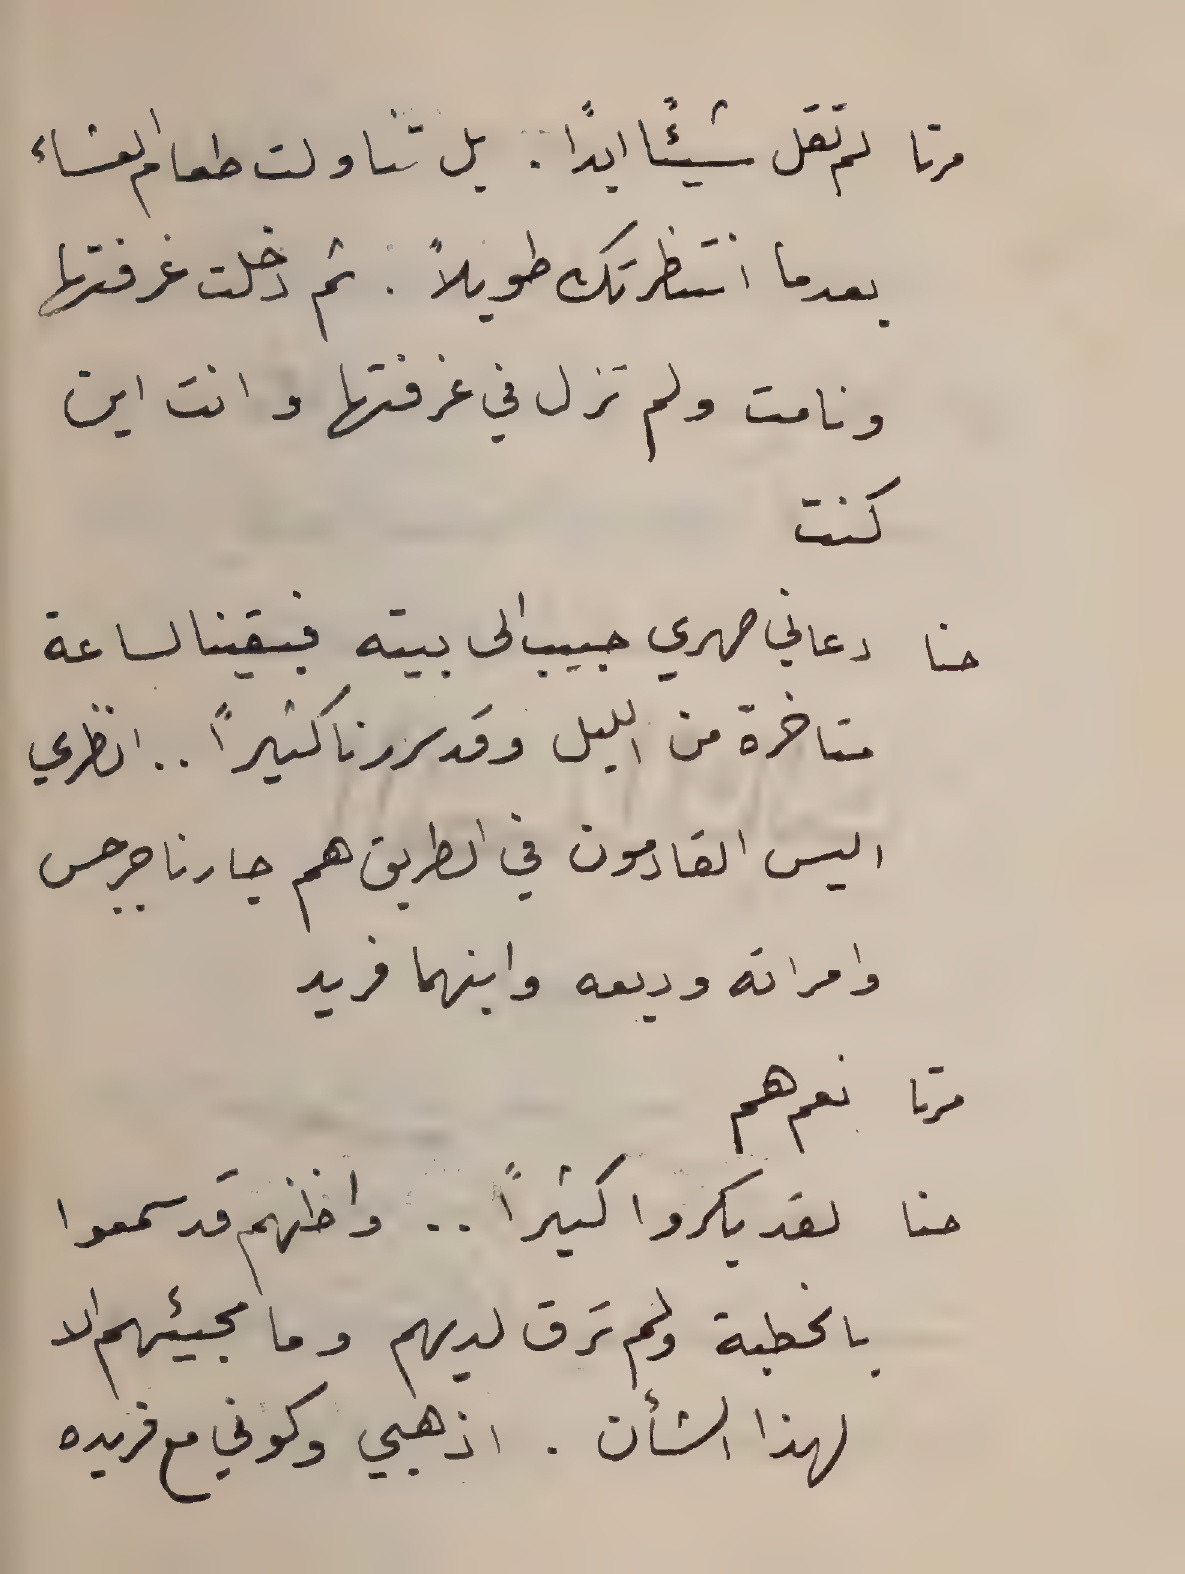 مرتا لم تقل شيئًا ابدًا . بل تناولت طعام العشاء
بعدما انتظرتك طويلاً . ثم دخلت غرفتها
ونامت ولم تزل في غرفتها وانت اين
كنت
حنا دعاني صهري حبيب الى بيته فبقينا لساعة
متاخرة من الليل وقد سررنا كثيراً .. انظري
اليس القادمون في الطريق هم جارنا جرجس
وامراته وديعه وابنهما فريد
مرتا نعم هم
حنا لقد بكروا كثيراً .. واظنهم قد سمعوا
بالخطبة ولم ترق لديهم وما مجيئهم الا
لهذا الشأن . اذهبي وكوني مع فريده